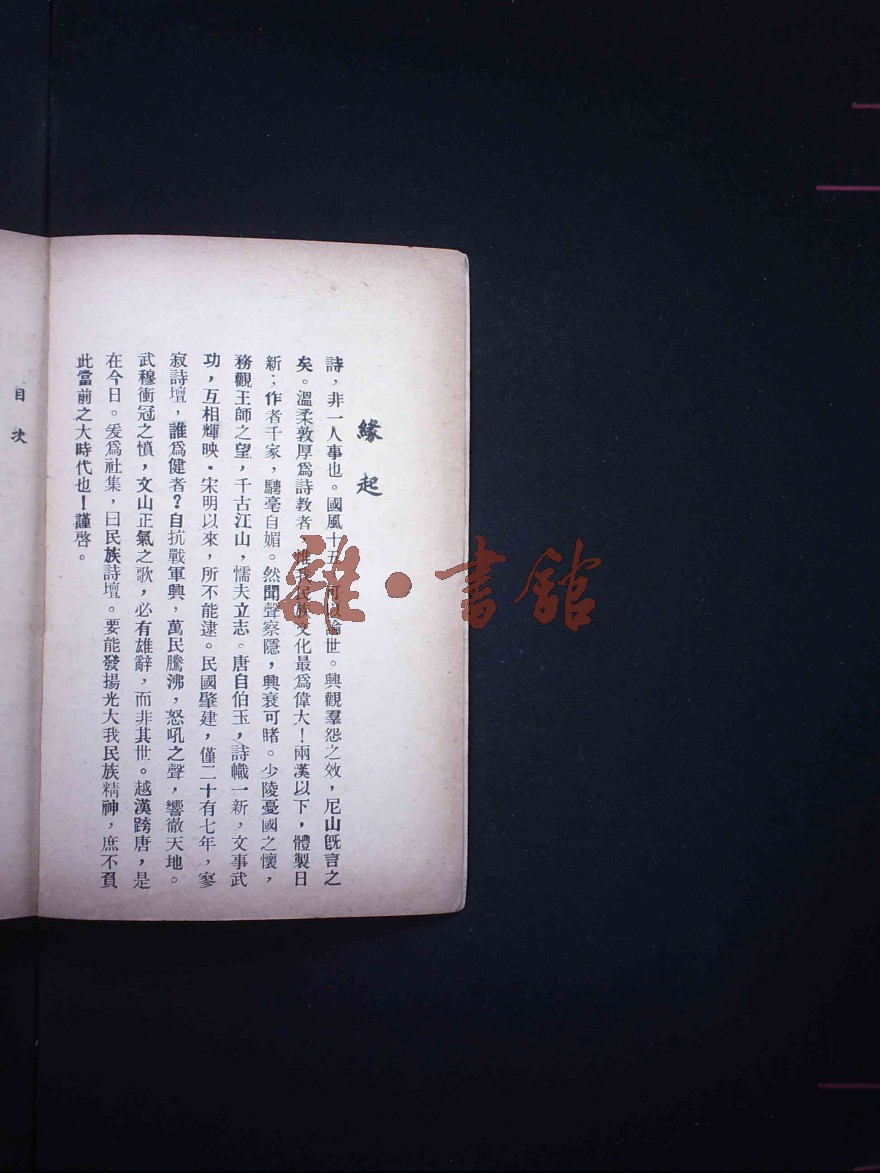 緣起
詩，非一人事也。國風十五，可以論世。興觀羣怨之效，尼山旣言之
矣。溫柔敦厚爲詩教者，惟我民族文化最爲偉大！兩漢以下，體製日
新；作者千家，騁毫自媚。然聞聲察隱，興衰可睹。少陵憂國之懷，
務觀王師之望，千古江山，懦夫立志。唐自伯玉，詩幟一新，文事武
功，互相輝映。宋明以來，所不能逮。民國肇建，僅二十有七年，寥
寂詩壇，誰爲健者？自抗戰軍興，萬民騰沸，怒吼之聲，響徹天地。
武穆衝冠之憤，文山正氣之歌，必有雄辭，而非其世。越漢跨唐，是
在今日。爰爲社集，曰民族詩壇。要能發揚光大我民族精神，庶不負
此當前之大時代也！謹啓。
目次
雜·書館